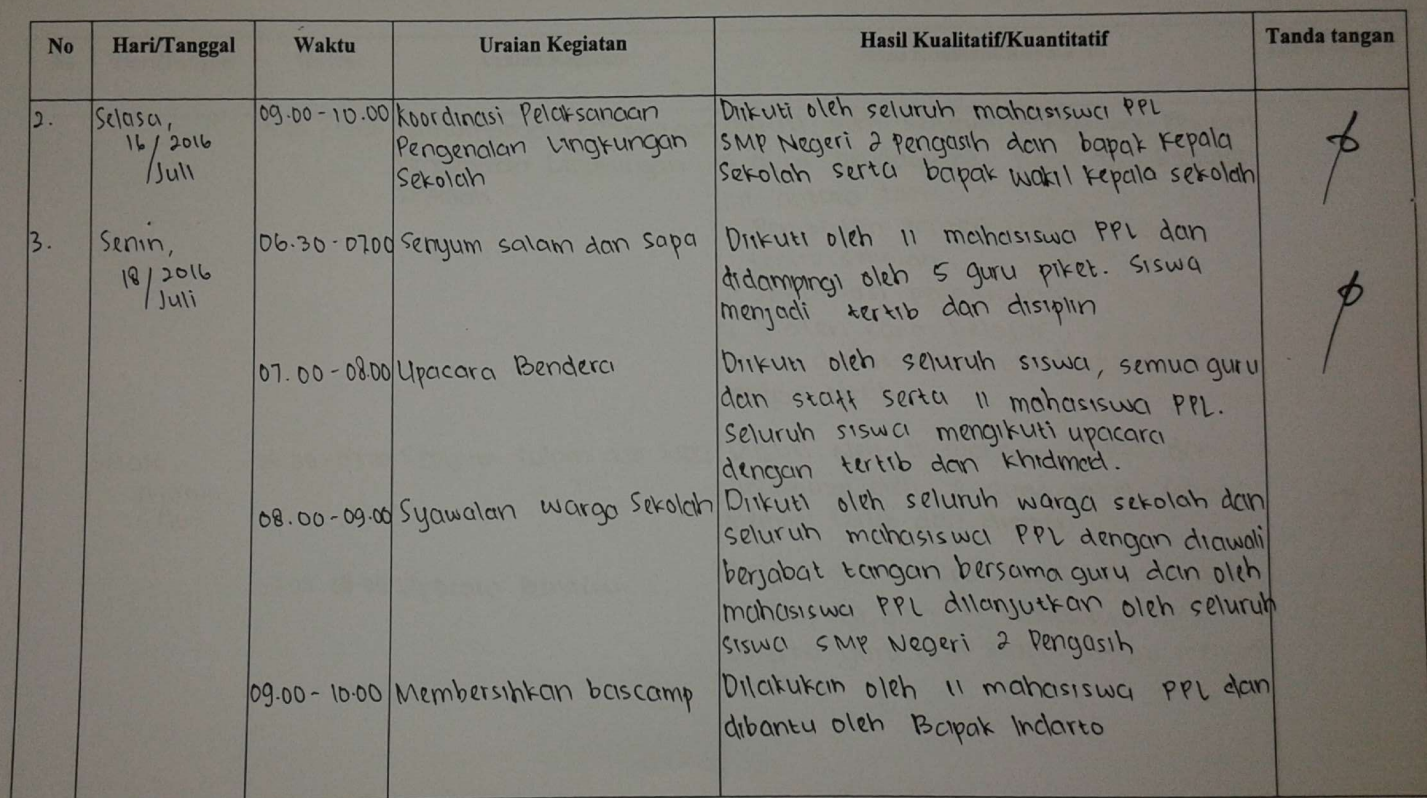 No Hari/Tanggal Waktu Uraian Kegiatan Hasil Kualitatif/Kuantitatif Tanda tangan
2. Selasa, 09.00 - 10.00 Koordinasi Pelaksanaan Diikuti oleh seluruh mahasiswa PPL
16/2016 Pengenalan Lingkungan SMP Negeri 2 Pengasih dan bapak Kepala
Juli Sekolah Sekolah serta bapak wakil kepala sekolah
3. Senin, 06.30 - 07.00 Senyum salam dan sapa Diikuti oleh 11 mahasiswa PPL dan
18/2016 didampingi oleh 5 guru piket. Siswa
Juli menjadi tertib dan disiplin
07.00 - 08.00 Upacara Bendera Diikuti oleh seluruh siswa, semua guru
dan staff serta 11 mahasiswa PPL.
Seluruh siswa mengikuti upacara
dengan tertib dan khidmad.
08.00 - 09.00 Syawalan warga Sekolah Diikuti oleh seluruh warga sekolah dan
seluruh mahasiswa PPL dengan diawali
berjabat tangan bersama guru dan oleh
mahasiswa PPL dilanjutkan oleh seluruh
siswa SMP Negeri 2 Pengasih
09.00 - 10.00 Membersihkan bascamp Dilakukan oleh 11 mahasiswa PPL dan
dibantu oleh Bapak Indarto